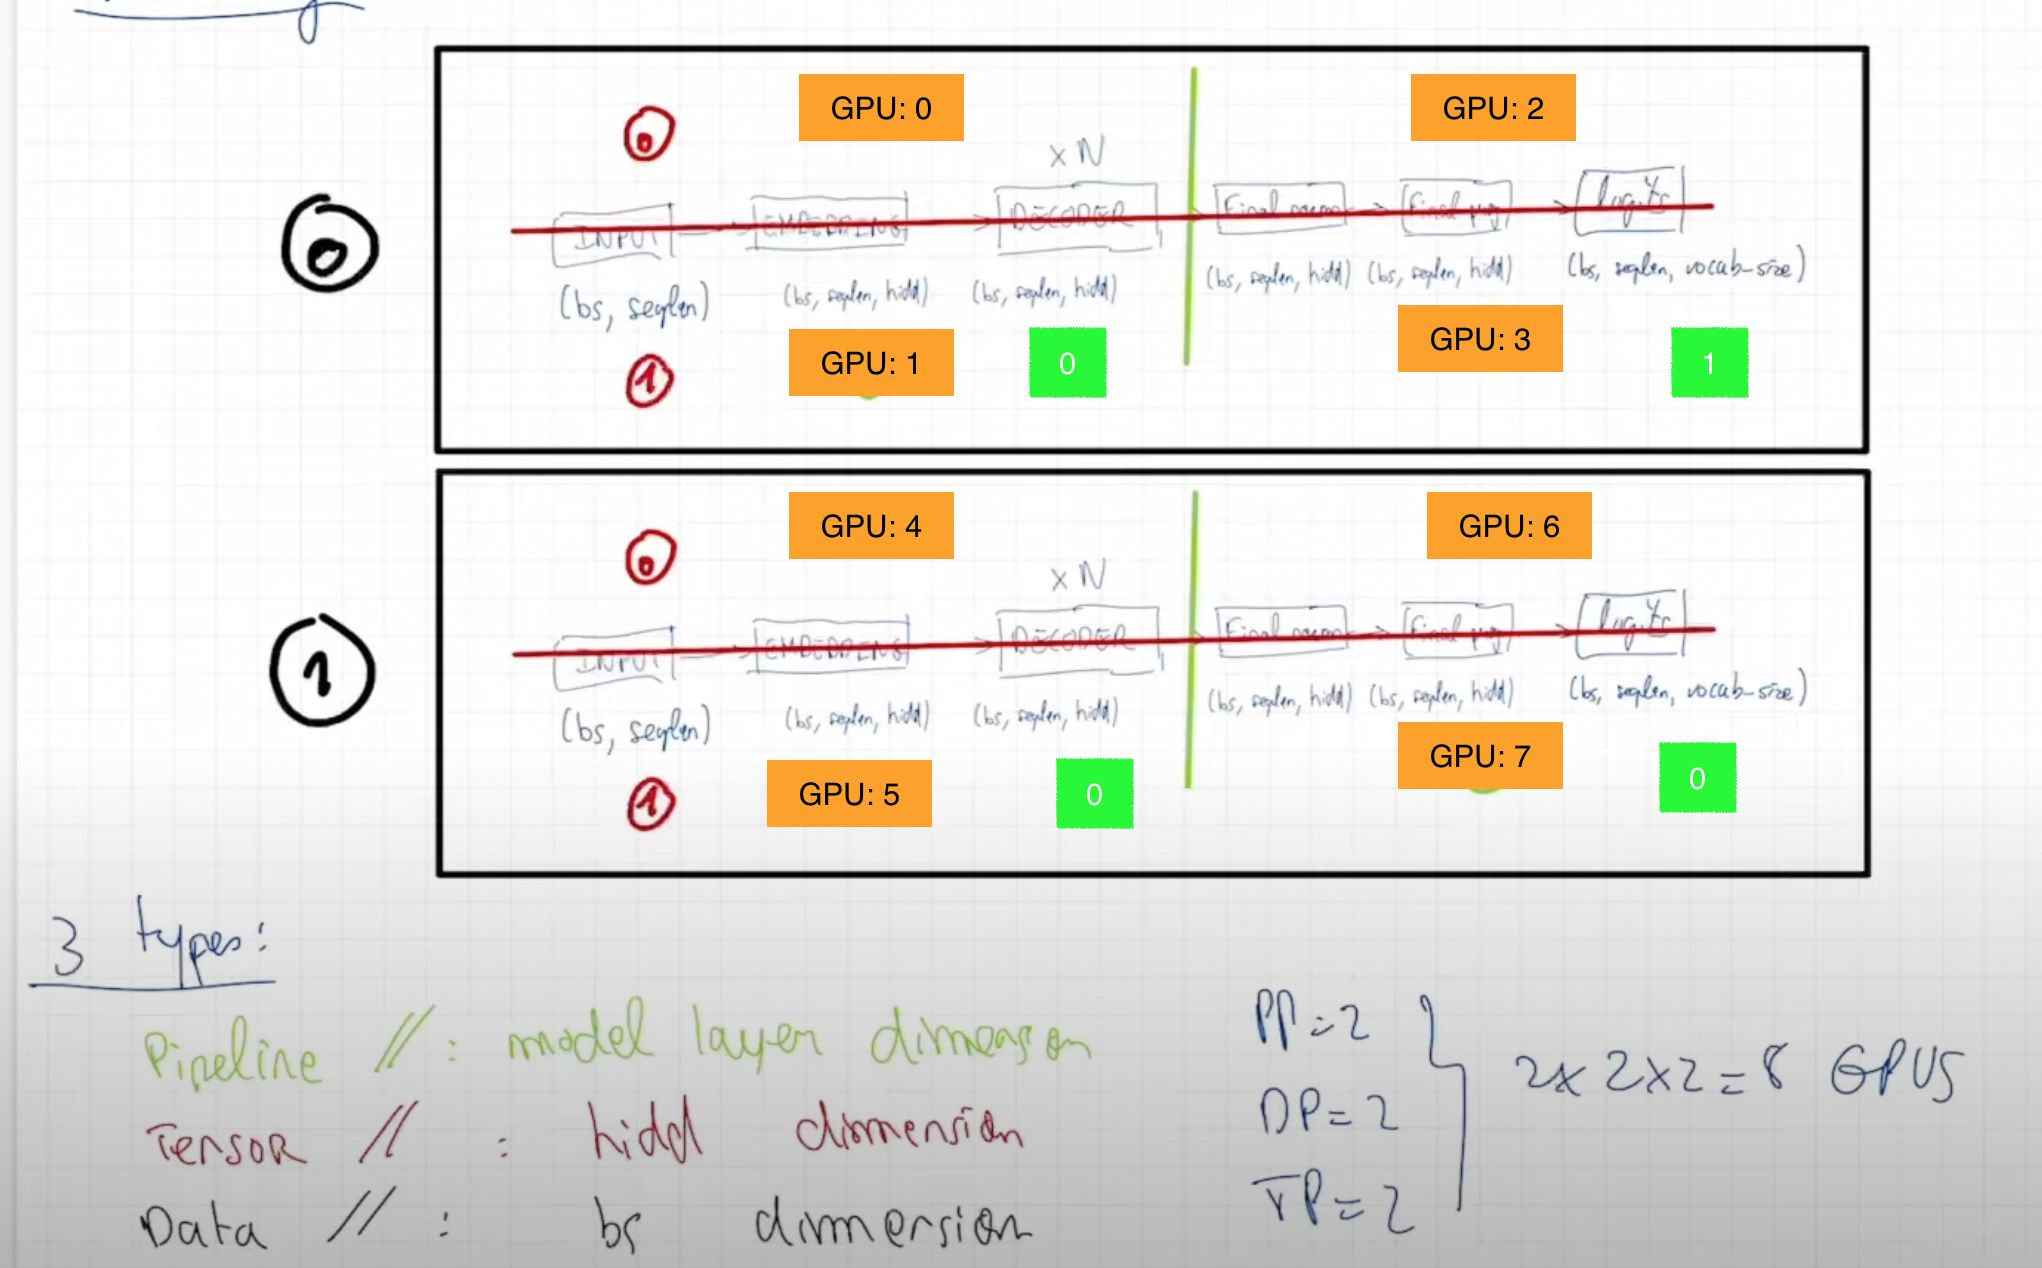 0
GPU: 0
GPU: 2
0
x N
INPUT
EMBEDDING
DECODER
Final norm
Final proj
logits
(bs, seqlen)
(bs, seqlen, hidd)
(bs, seqlen, hidd)
(bs, seqlen, hidd)
(bs, seqlen, hidd)
(bs, seqlen, vocab-size)
1
GPU: 1
0
GPU: 3
1
1
GPU: 4
GPU: 6
0
x N
INPUT
EMBEDDING
DECODER
Final norm
Final proj
logits
(bs, seqlen)
(bs, seqlen, hidd)
(bs, seqlen, hidd)
(bs, seqlen, hidd)
(bs, seqlen, hidd)
(bs, seqlen, vocab-size)
1
GPU: 5
0
GPU: 7
0
3 types:
Pipeline // : model layer dimension
Tensor // : hidd dimension
Data // : bs dimension
PP=2
DP=2
TP=2
2x2x2=8 GPUS